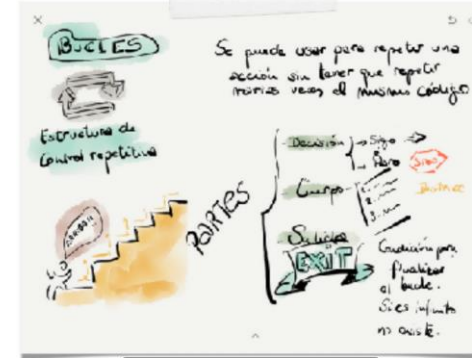 BUCLES
Se puede usar para repetir una
acción sin tener que repetir
varias veces el mismo código
Estructura de
Control repetitiva
PARTES
Decisión → Sigo
→ Paro
Cuerpo
1.
2.
3.
Salida
EXIT
Condición para
finalizar
el bucle.
Si es infinito
no existe.